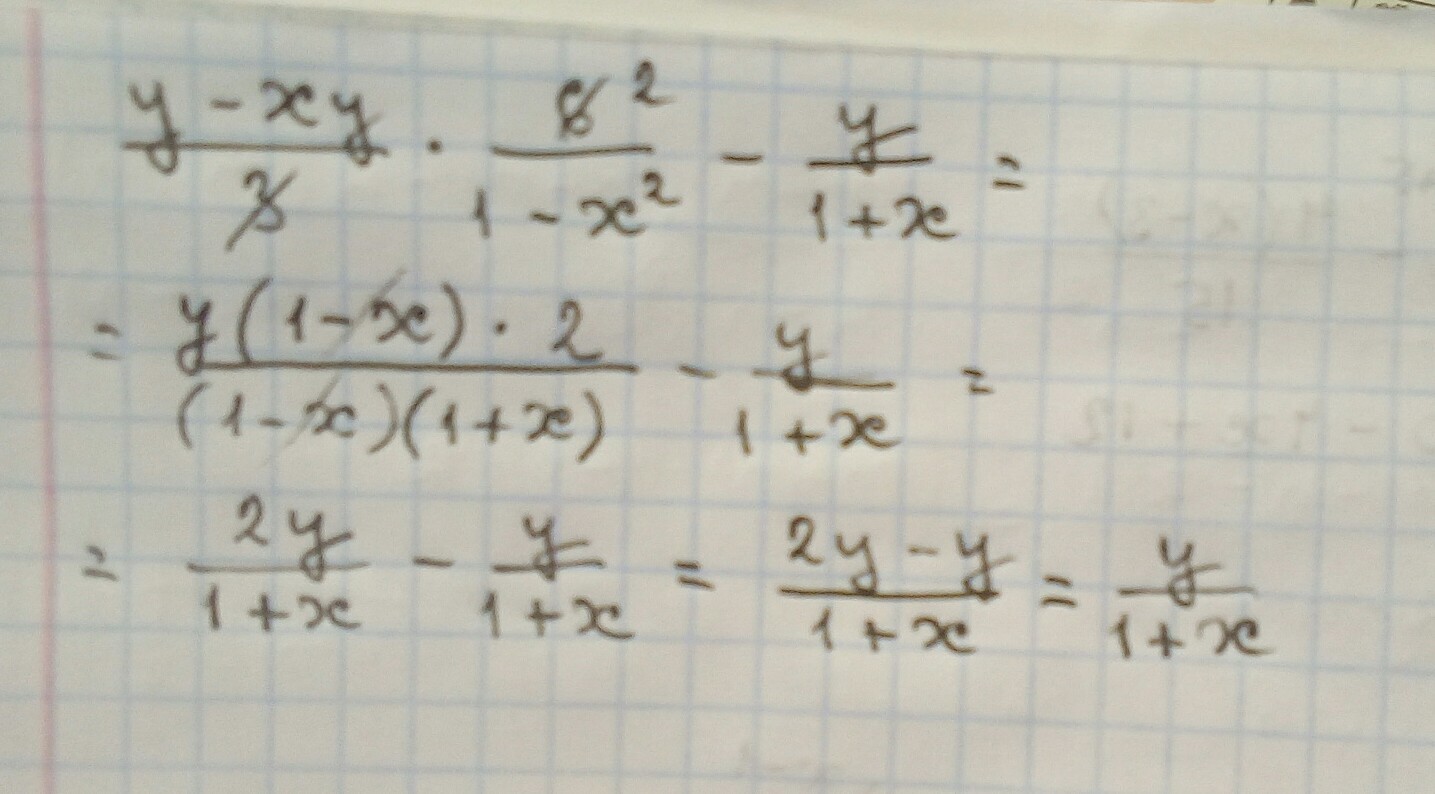 (y - xy)/3 · 6 2/(1 - x²) - y/(1 + x) =
= (y(1 - x) · 2)/((1 - x)(1 + x)) - y/(1 + x) =
= 2y/(1 + x) - y/(1 + x) = (2y - y)/(1 + x) = y/(1 + x)